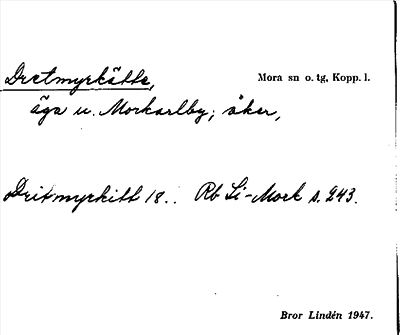 Dretmyrkätte, Mora sn o. tg, Kopp. l.
äga u. Morkarlby; åker,
Dritmyrkitt 18.. Rb Li-Mork s. 243.
Bror Lindén 1947.